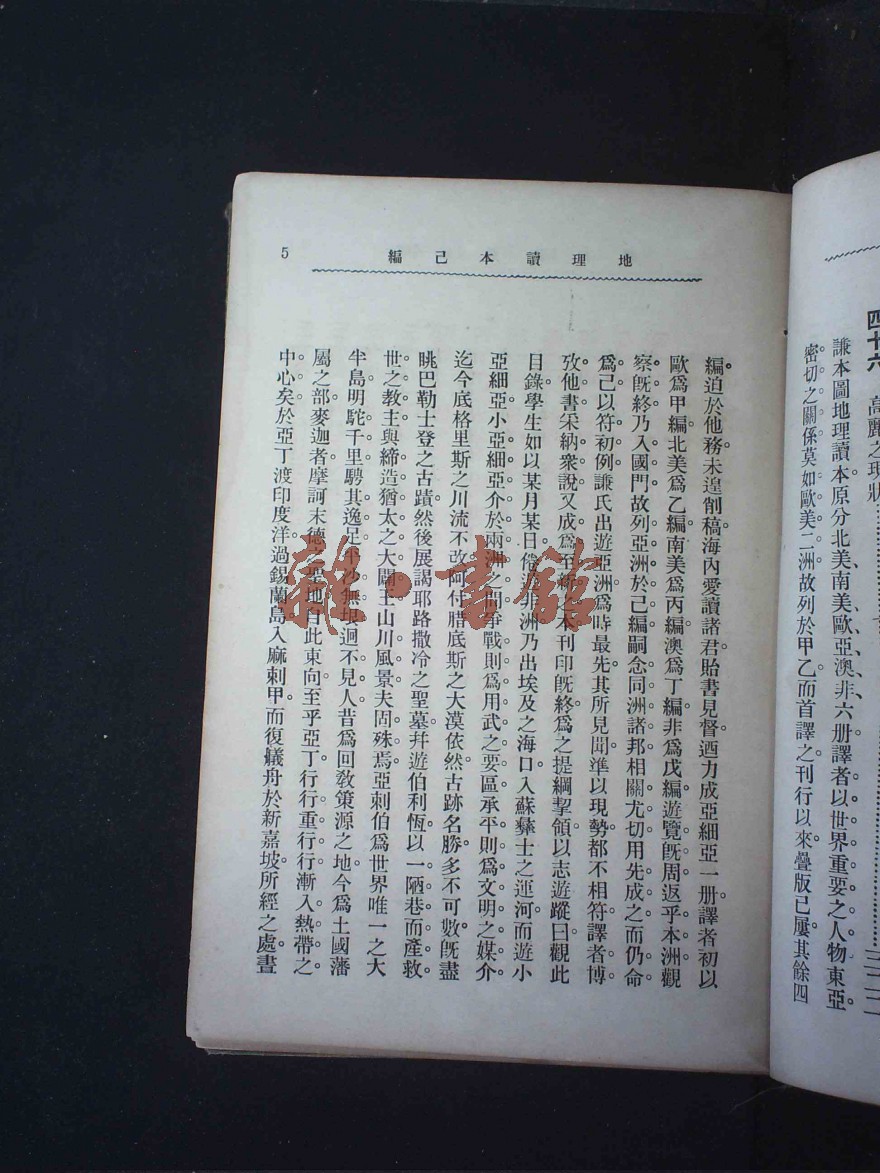 四十六 高麗之現狀
謙本圖地理讀本原分北美南美歐亞澳非六册譯者以世界重要之人物東亞
密切之關係莫如歐美二洲故列於甲乙而首譯之刊行以來疊版已屢其餘四
地理讀本己編
5
編迫於他務未遑削稿海內愛讀諸君貽書見督迺力成亞細亞一册譯者初以
歐爲甲編北美爲乙編南美爲丙編澳爲丁編非爲戊編遊覽旣周返乎本洲觀
察旣終乃入國門故列亞洲於己編嗣念同洲諸邦相關尤切用先成之而仍命
爲己以符初例謙氏出遊亞洲爲時最先其所見聞準以現勢都不相符譯者博
攷他書宋納衆說又成爲至新之本刊印旣終爲之提綱挈領以志遊蹤曰觀此
目錄學生如以某月某日偕遊非洲乃出埃及之海口入蘇彝士之運河而遊小
亞細亞小亞細亞介於兩洲之間爭戰則爲用武之要區承平則爲文明之媒介
迄今底格里斯之川流不改阿付腊底斯之大漠依然古跡名勝多不可數旣盡
眺巴勒士登之古蹟然後展謁耶路撒冷之聖墓幷遊伯利恆以一陋巷而產救
世之敎主與締造猶太之大闢王山川風景夫固殊焉亞剌伯爲世界唯一之大
半島明駝千里騁其逸足平沙無垠迴不見人昔爲回敎策源之地今爲土國藩
屬之部麥迦者摩訶末德之聖地自此東向至乎亞丁行行重行行漸入熱帶之
中心矣於亞丁渡印度洋過錫蘭島入麻剌甲而復艤舟於新嘉坡所經之處晝
雜·書館